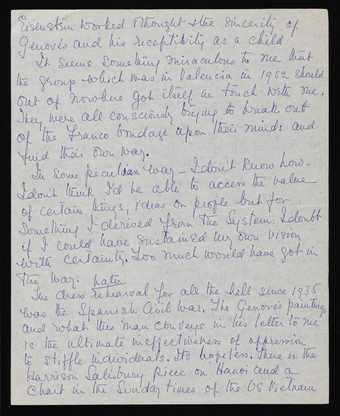 Eisenstein worked & thought & the sincerity of
Genovés and his receptivity as a child.
It seems something miraculous to me that
the group which was in Valencia in 1952 should
out of nowhere got itself in touch with me.
They were all consciously trying to break out
of the Franco bondage upon their minds and
find their own way.
In some peculiar way — I don't know how —
I don't think I'd be able to access the value
of certain things, ideas or people but for
something I derived from the System. I doubt
if I could have sustained my own vision
with certainty. Too much would have got in
the way. Later
The dress rehearsal for all the hell since 1936
was the Spanish Civil War. The Genovés paintings
and what this man conveys in his letter to me
is the ultimate ineffectiveness of oppression
to stiffle individuals. Its hopeless. There is the
Harrison Salisbury piece on Hanoi and a
chart in the Sunday Times of the US Vietnam